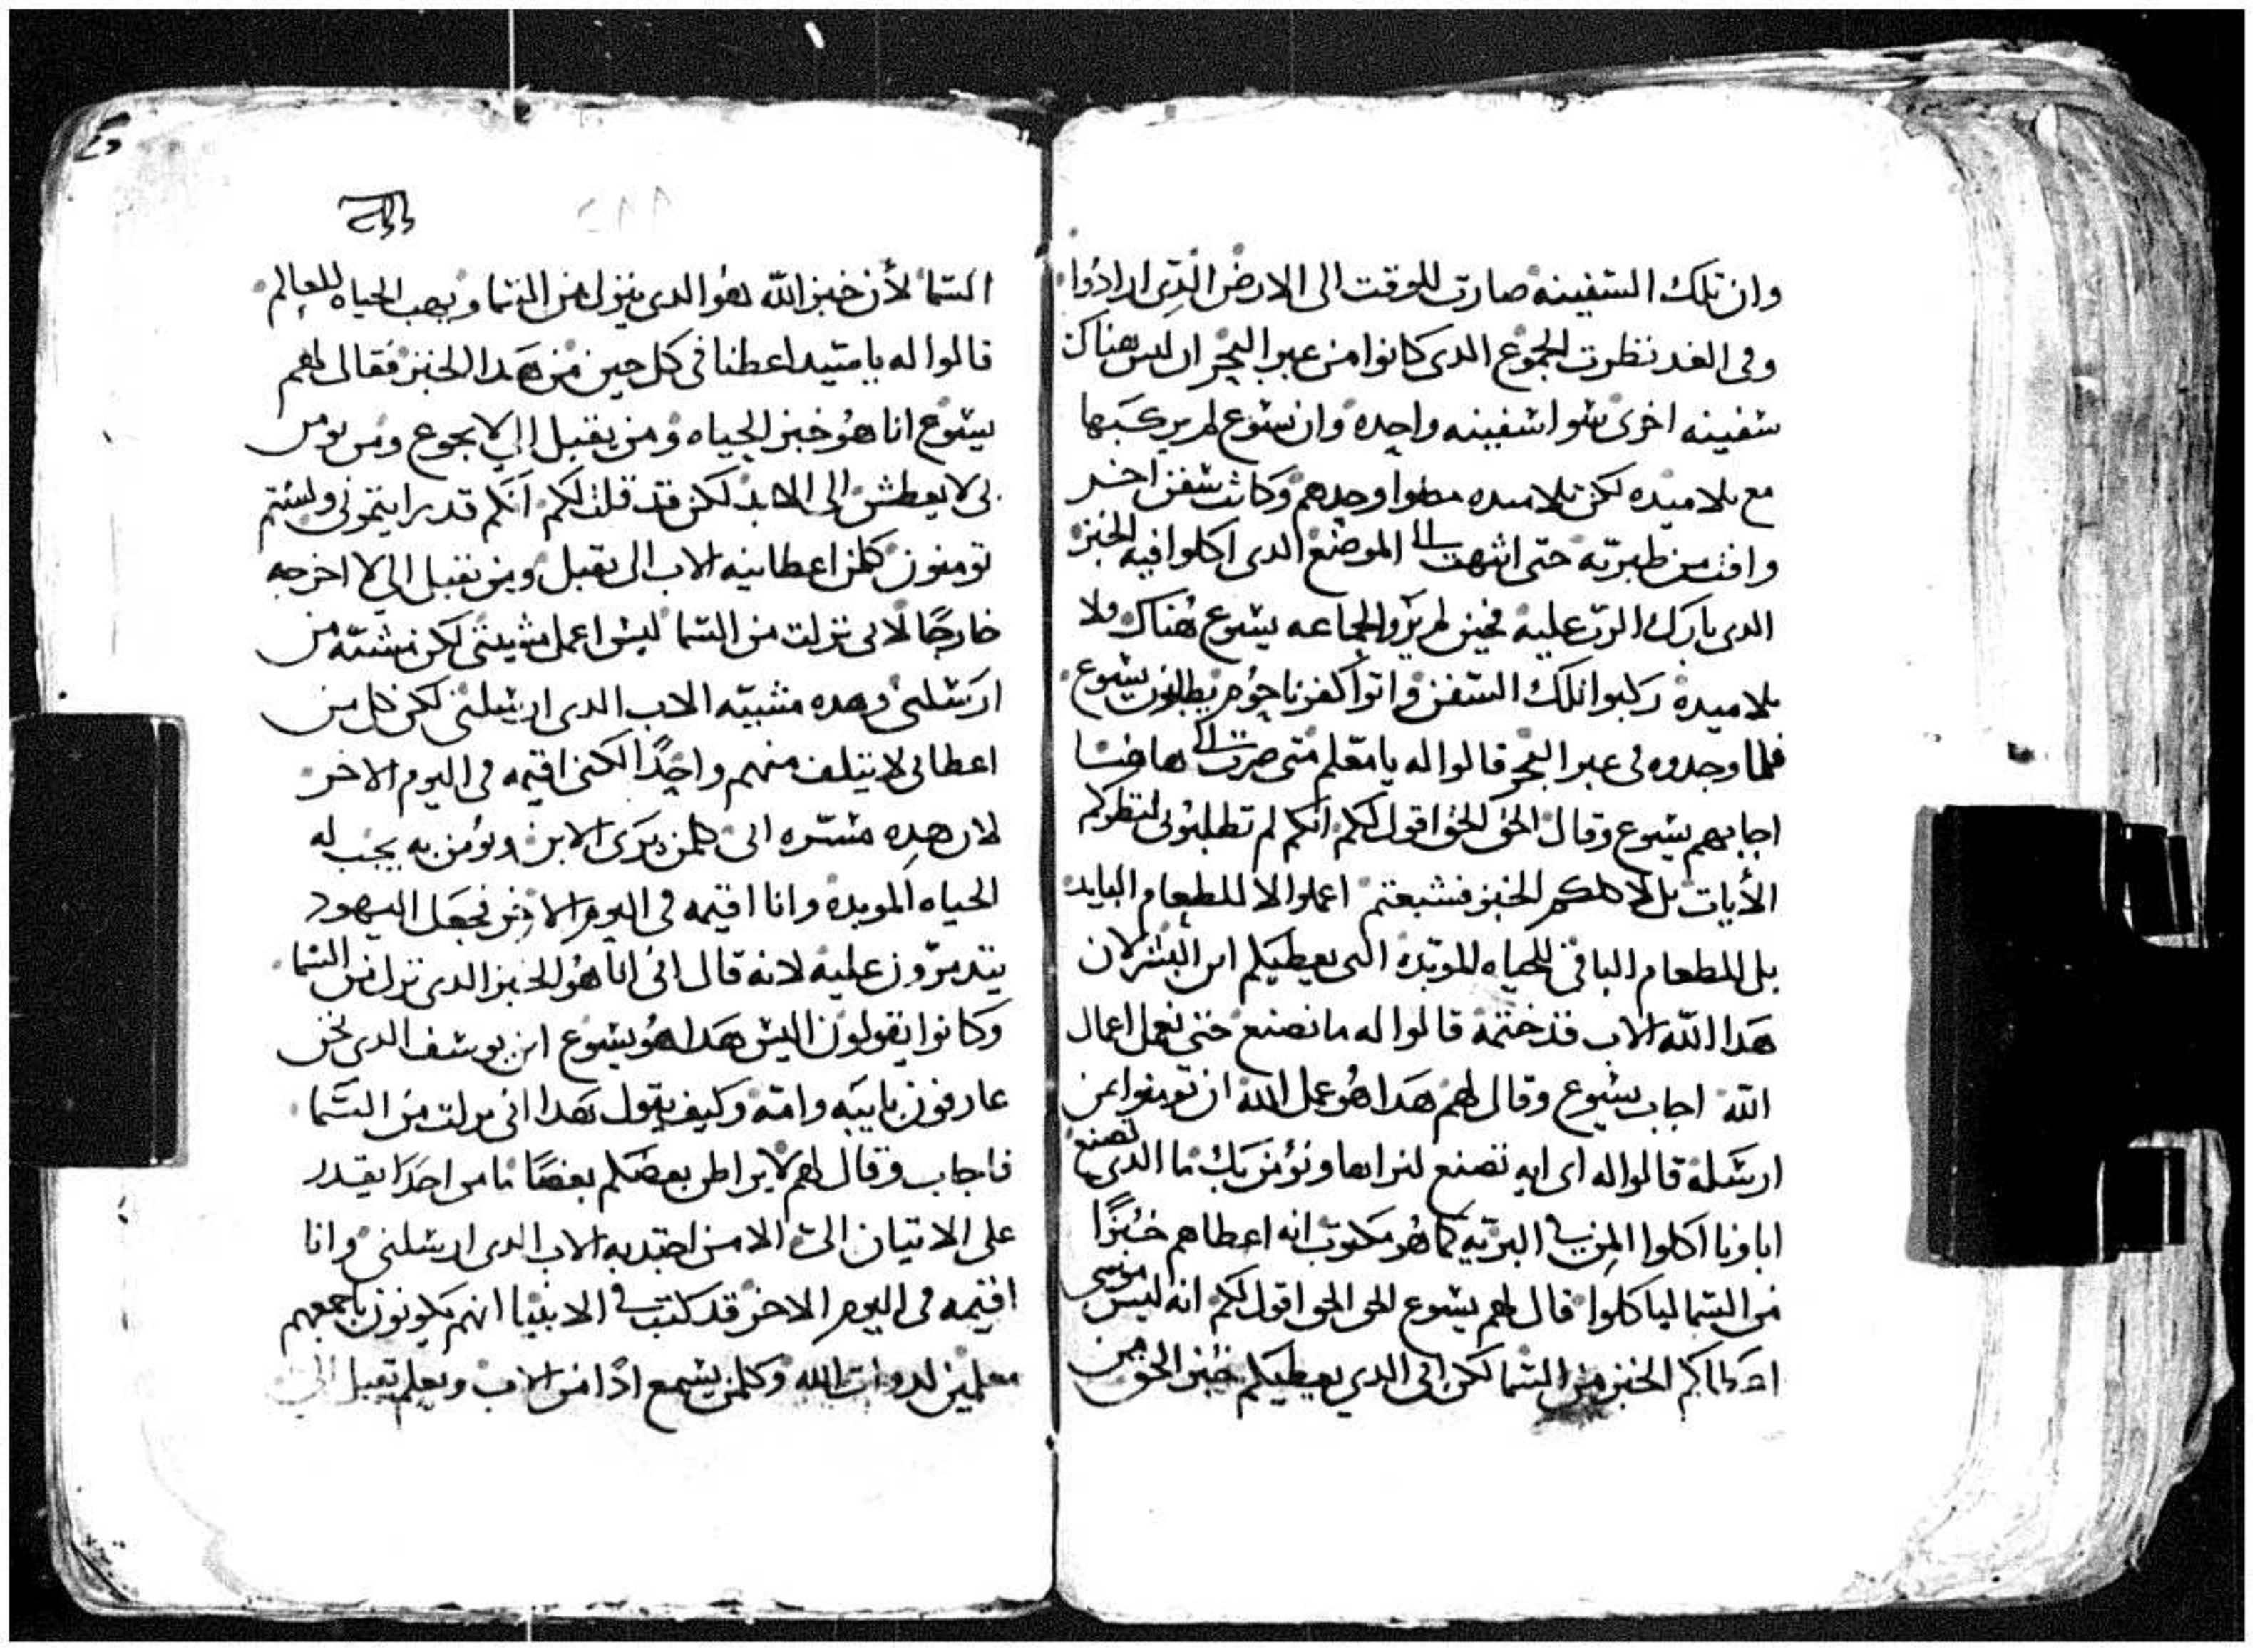 وان تلك السفينه صارت للوقت الى الارض الذى ارادوا
وفى الغد نظرت الجموع الدى كانوا من عبر البحر ان ليس هناك
سفينه اخرى سوا سفينه واحده وان يسوع لم يركبها
مع تلاميده لكن تلاميده مضوا وحدهم وكانت سفن اخر
وافت من طبريه حتى انتهت الى الموضع الدى اكلوا فيه الخبز
الدى بارك الرب عليه فحين لم يروا الجماعه يسوع هناك ولا
تلاميده ركبوا تلك السفن واتوا كفرناحوم يطلبون يسوع
فلما وجدوه فى عبر البحر قالوا له يا معلم متى صرت الى هاهنا
اجابهم يسوع وقال الحق الحق اقول لكم انكم لم تطلبونى لنظركم
الأيات بل لاكلكم الخبز فشبعتم اعملوا لا للطعام البايد
بل للطعام الباقى للحياه الموبده التى يعطيكم ابن البشر لان
هدا الله الاب قد ختمه قالوا له ما نصنع حتى نعمل اعمال
الله اجاب يسوع وقال لهم هدا هو عمل الله ان تومنوا بمن
ارسله قالوا له اى ايه تصنع لنراها ونؤمن بك ما الدى تصنع
اباونا اكلوا المن فى البريه كما هو مكتوب انه اعطاهم خبزًا
من السما لياكلوا قال لهم يسوع الحق الحق اقول لكم انه ليس موسى
اعطاكم الخبز من السما لكن ابى الدي يعطيكم خبز الحق من
السما لأن خبز الله هو الدى ينزل من السما ويهب الحياه للعالم
قالوا له يا سيد اعطنا فى كل حين من هدا الخبز فقال لهم
يسوع انا هو خبز الحياه ومن يقبل الي لا يجوع ومن يومن
بى لا يعطش الى الابد لكن قد قلت لكم انكم قد رايتمونى ولستم
تومنون كلمن اعطانيه الاب الى يقبل ومن يقبل الي لا اخرجه
خارجًا لانى نزلت من السما ليس اعمل مشيتى لكن مشيّه من
ارسلنى وهده مشييه الاب الدى ارسلنى لكن كل من
اعطانى لا يتلف منهم واحدًا لكننى اقيمه فى اليوم الاخر
لان هده مسره ابى كلمن يرى الابن ويؤمن به يجب له
الحياه الموبده وانا اقيمه فى اليوم الاخر فجعل اليهود
يتدمرون عليه لانه قال انى انا هو الخبز الدى نزل من السما
وكانوا يقولون اليس هدا هو يسوع ابن يوسف الدى نحن
عارفون بابيه وامه وكيف يقول هدا انى نزلت من السما
فاجاب وقال لهم لا يراطن بعضكم بعضًا ما من احدًا يقدر
على الاتيان الىّ الا من اجتدبه الاب الدى ارسلنى وانا
اقيمه فى اليوم الاخر قد كتب فى الانبيا انهم يكونون باجمعهم
معلمين الله وكلمن يسمع ادًا من الاب ويعلم يقبل الىّ